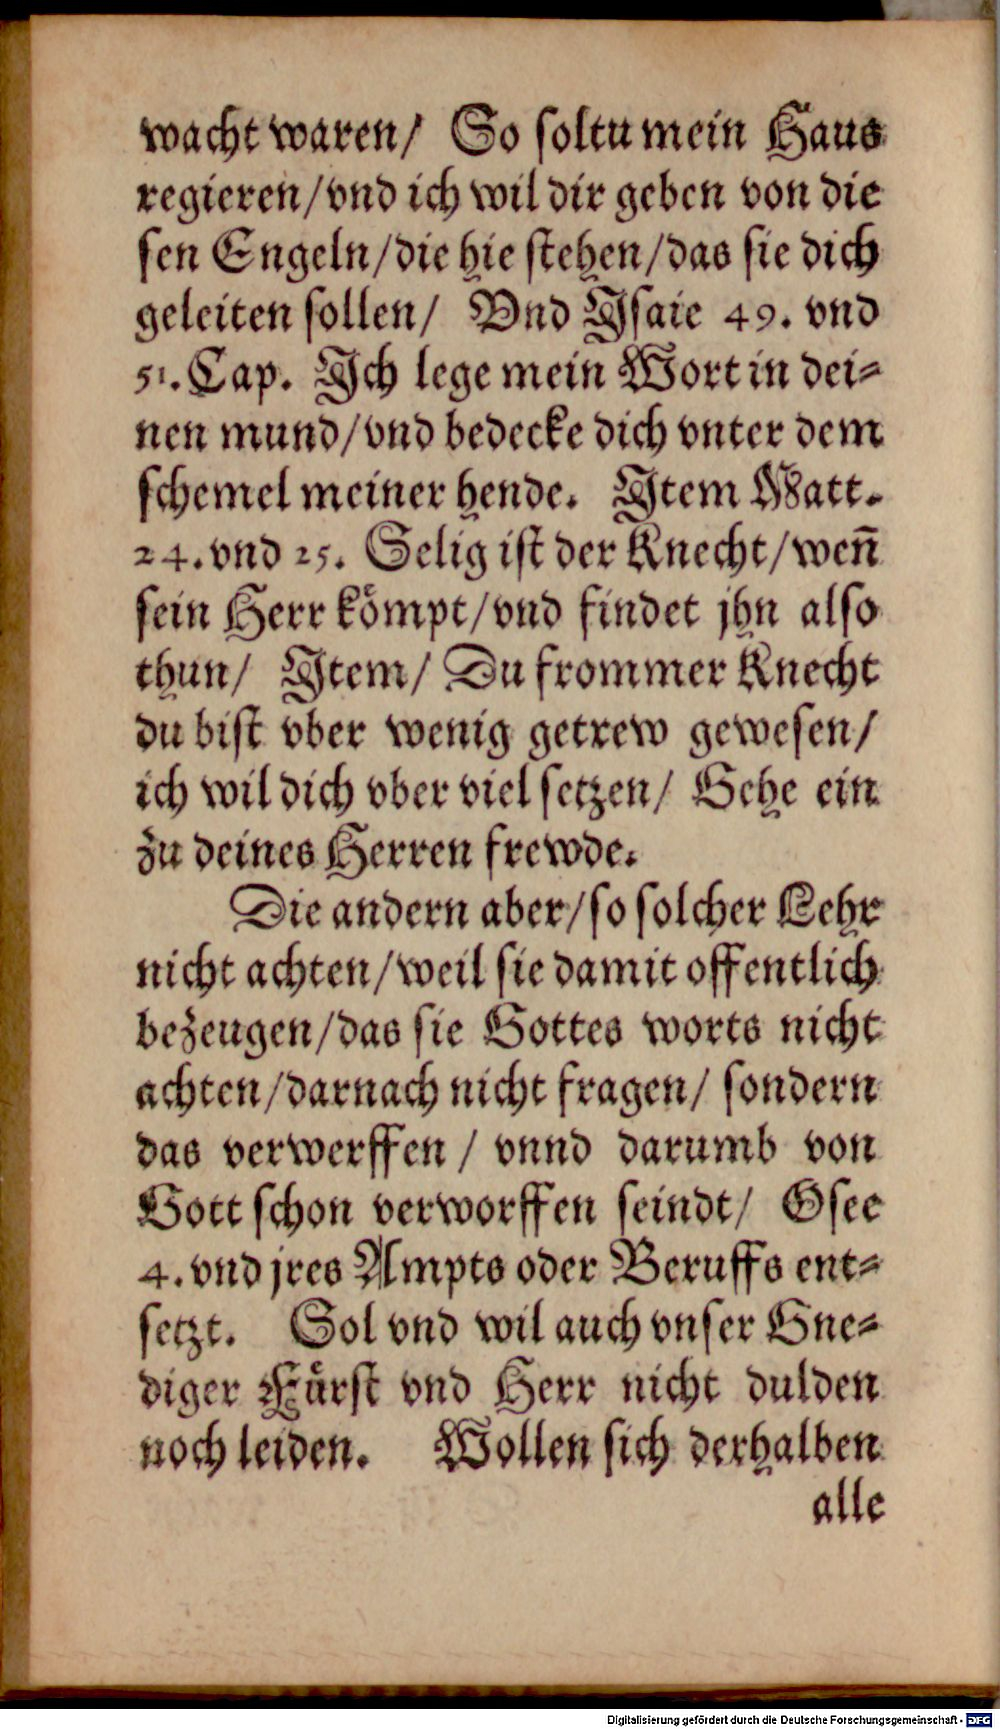 wacht waren/ So soltu mein Haus
regieren/vnd ich wil dir geben von die
sen Engeln/die hie stehen/das sie dich
geleiten sollen/ Vnd Jsaie 49. vnd
51. Cap. Jch lege mein Wort in dei-
nen mund/vnd bedecke dich vnter dem
schemel meiner hende. Jtem Matt.
24. vnd 25. Selig ist der Knecht/wen̄
sein Herr kömpt/vnd findet jhn also
thun/ Jtem/ Du frommer Knecht
du bist vber wenig getrew gewesen/
ich wil dich vber viel setzen/ Gehe ein
zu deines Herren frewde.
Die andern aber/so solcher Lehr
nicht achten/weil sie damit offentlich
bezeugen/das sie Gottes worts nicht
achten/darnach nicht fragen/ sondern
das verwerffen / vnnd darumb von
Gott schon verworffen seindt/ Osee
4. vnd jres Ampts oder Beruffs ent-
setzt. Sol vnd wil auch vnser Gne-
diger Fürst vnd Herr nicht dulden
noch leiden. Wollen sich derhalben
alle
Digitalisierung gefördert durch die Deutsche Forschungsgemeinschaft - DFG